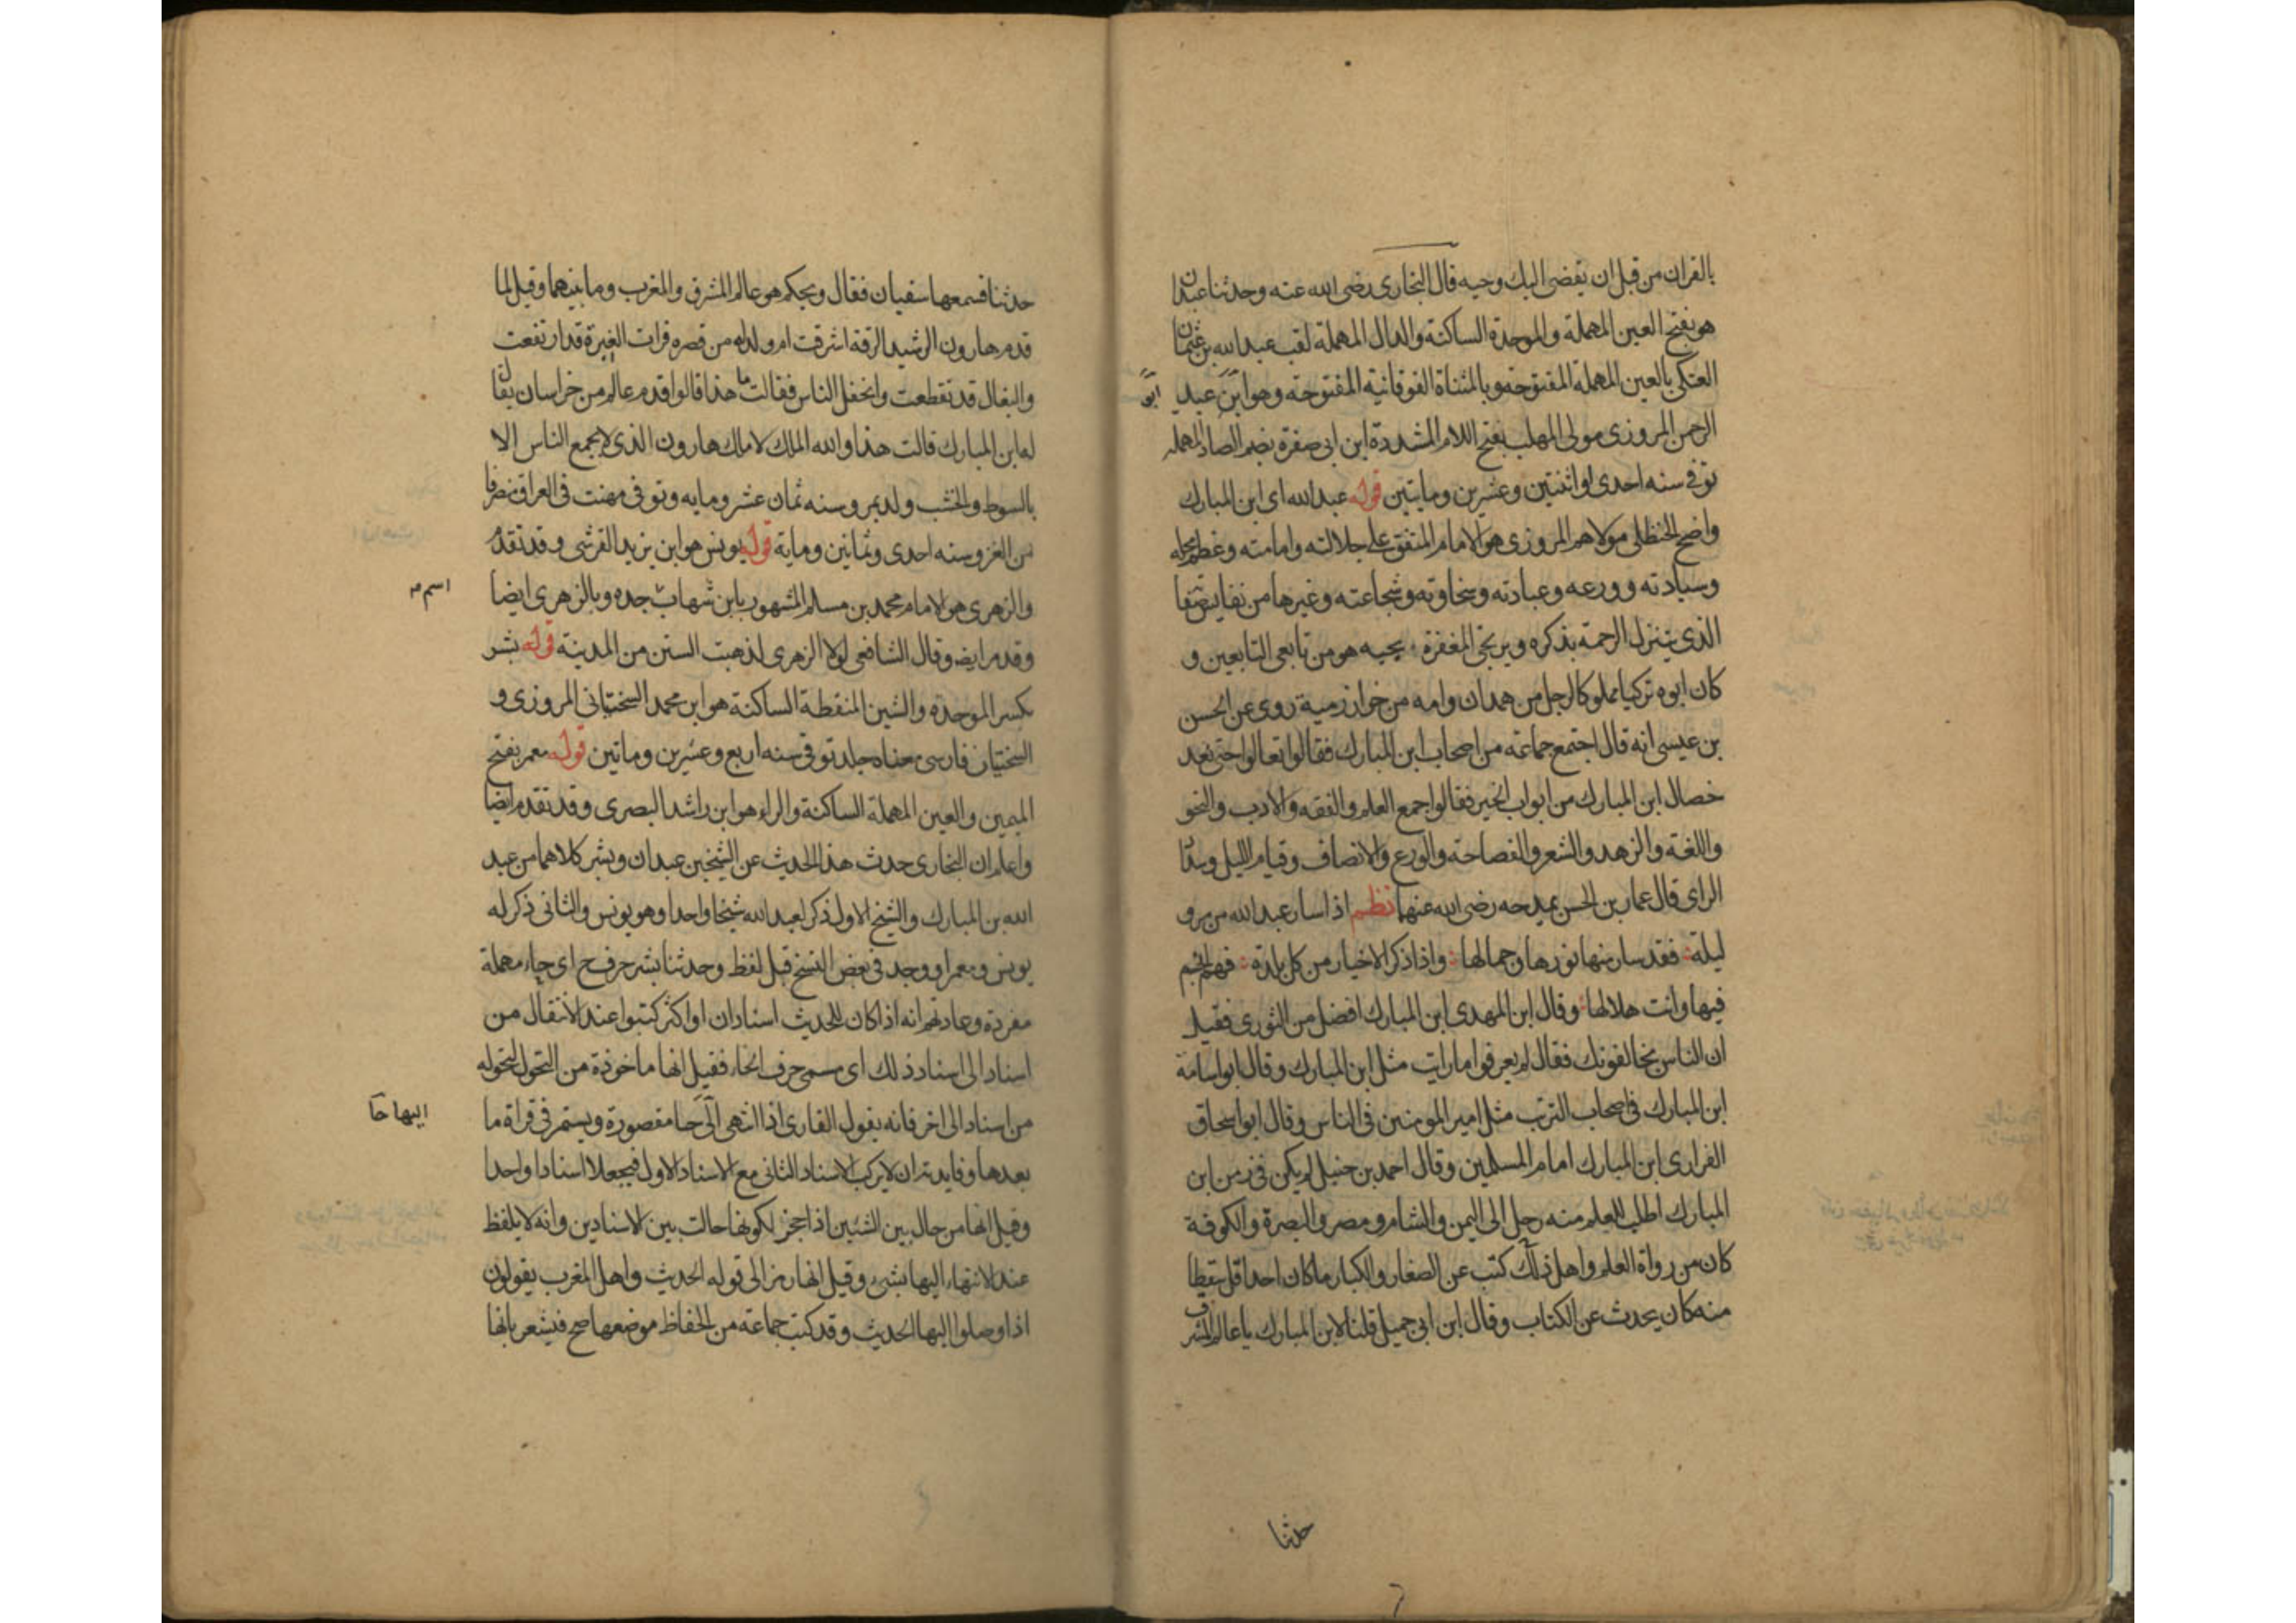 بالقران من قبل ان يقضى اليك وحيه قال البخارى رضى الله عنه وحدثنا عبدان
هو بفتح العين المهملة والموحدة الساكنة والدال المهملة لقب عبد الله بن عثمان
العتكى بالعين المهملة المفتوحة وبالمثناة الفوقانية المفتوحة وهو ابن عبد
ابو
الرحمن المروزى مولى المهلب بفتح اللام المشددة ابن ابى صفرة بضم الصاد المهملة
توفى سنه احدى او اثنتين وعشرين ومايتين قوله عبد الله اى ابن المبارك
واضح الحنظلى مولاهم المروزى هو الامام المتفق على جلالته وامامته وعظم محله
وسيادته وورعه وعبادته وسخاوته وشجاعته وغيرها من نفايس
الذى يتنزل الرحمة بذكره ويرتجى المغفرة بحبه هو من تابعى التابعين و
كان ابوه تركيا مملوكا لرجل من همدان وامه من خوارزمية روى عن الحسن
بن عيسى انه قال اجتمع جماعة من اصحاب ابن المبارك فقالوا تعالوا حتى نعد
خصال ابن المبارك من ابواب الخير فقالوا جمع العلم والفقه والادب والنحو
واللغة والزهد والشعر والفصاحة والورع والانصاف وقيام الليل وسداد
الراى قال عمار بن الحسن يمدحه رضى الله عنهما نظم اذا سار عبد الله من مرو
ليلة فقد سار منها نورها وجمالها واذا ذكر الاخيار من كل بلدة فهم انجم
فيها وانت هلالها وقال ابن المهدى ابن المبارك افضل من الثورى فقيل
ان الناس يخالفونك فقال لم يعرفوا ما رايت مثل ابن المبارك وقال ابو اسامة
ابن المبارك فى اصحاب مثل امير المومنين فى الناس وقال ابو اسحاق
الفزارى ابن المبارك امام المسلمين وقال احمد بن حنبل لم يكن فى زمن ابن
المبارك اطلب للعلم منه رحل الى اليمن والشام ومصر والبصرة والكوفة
كان من رواة العلم واهل ذلك كتب عن الصغار والكبار ما كان احد اقل سقطا
منه كان يحدث عن الكتاب وقال ابن ابى جميل قلنا لابن المبارك يا عالم المشرق
حدثنا
حدثنا فسمعها سفيان فقال ويحكم هو عالم المشرق والمغرب وما بينهما وقيل لما
قدم هارون الرشيد الرقة اشرقت ام ولد له من قصره فرات الغبرة قد ارتفعت
والبغال قد تقطعت وانحفل الناس فقالت ما هذا قالوا قدم عالم من خراسان يقال
له ابن المبارك قالت هذا والله الملك لا ملك هارون الذى لا يجمع الناس الا
بالسوط والخشب ولد بمرو سنه ثمان عشر ومايه وتوفى فى العراق منصرفا
من الغزو سنه احدى وثمانين وماية قوله يونس هو ابن يزيد القرشى وقد تقدم
والزهرى هو الامام محمد بن مسلم المشهور بابن شهاب جده وبالزهرى ايضا
اسم
وقدم ايضا وقال الشافعى لولا الزهرى لذهبت السنن من المدينة قوله بشر
بكسر الموحدة والشين المنقطة الساكنة هو ابن محمد السختيانى المروزى و
السختيان فارسى معناه جلد توفى سنه اربع وعشرين وماتين قوله معمر بفتح
الميمين والعين المهملة الساكنة والراء هو ابن راشد البصرى وقد تقدم ايضا
واعلم ان البخارى حدث هذا الحديث عن الشيخين عبدان وبشر كلاهما من عبد
الله بن المبارك والشيخ الاول ذكر لعبد الله شيخا واحدا وهو يونس والثانى ذكر له
يونس ومعمرا ووجد فى بعض النسخ قبل لفظ وحدثنا بشر حرف ح اى حاء مهملة
مفردة وعادتهم انه اذا كان للحديث اسنادان او اكثر كتبوا عند الانتقال من
اسناد الى اسناد ذلك اى مسمى حرف الحاء فقيل انها ماخوذة من التحول لتحوله
من اسناد الى اخر فانه يقول القارى اذا انتهى الى حا مقصورة ويستمر فى قراة ما
اليها حا
بعدها وفايدته ان لا يركب الاسناد الثانى مع الاسناد الاول فيجعلا اسنادا واحدا
وقيل انها من حال بين الشئين اذا حجز لكونها حالت بين الاسنادين وانه لا يلفظ
عند الانتهاء اليها بشئ وقيل انها رمز الى قوله الحديث واهل المغرب يقولون
اذا وصلوا اليها الحديث وقد كتب جماعة من الحفاظ موضعها صح فيشعر بانها